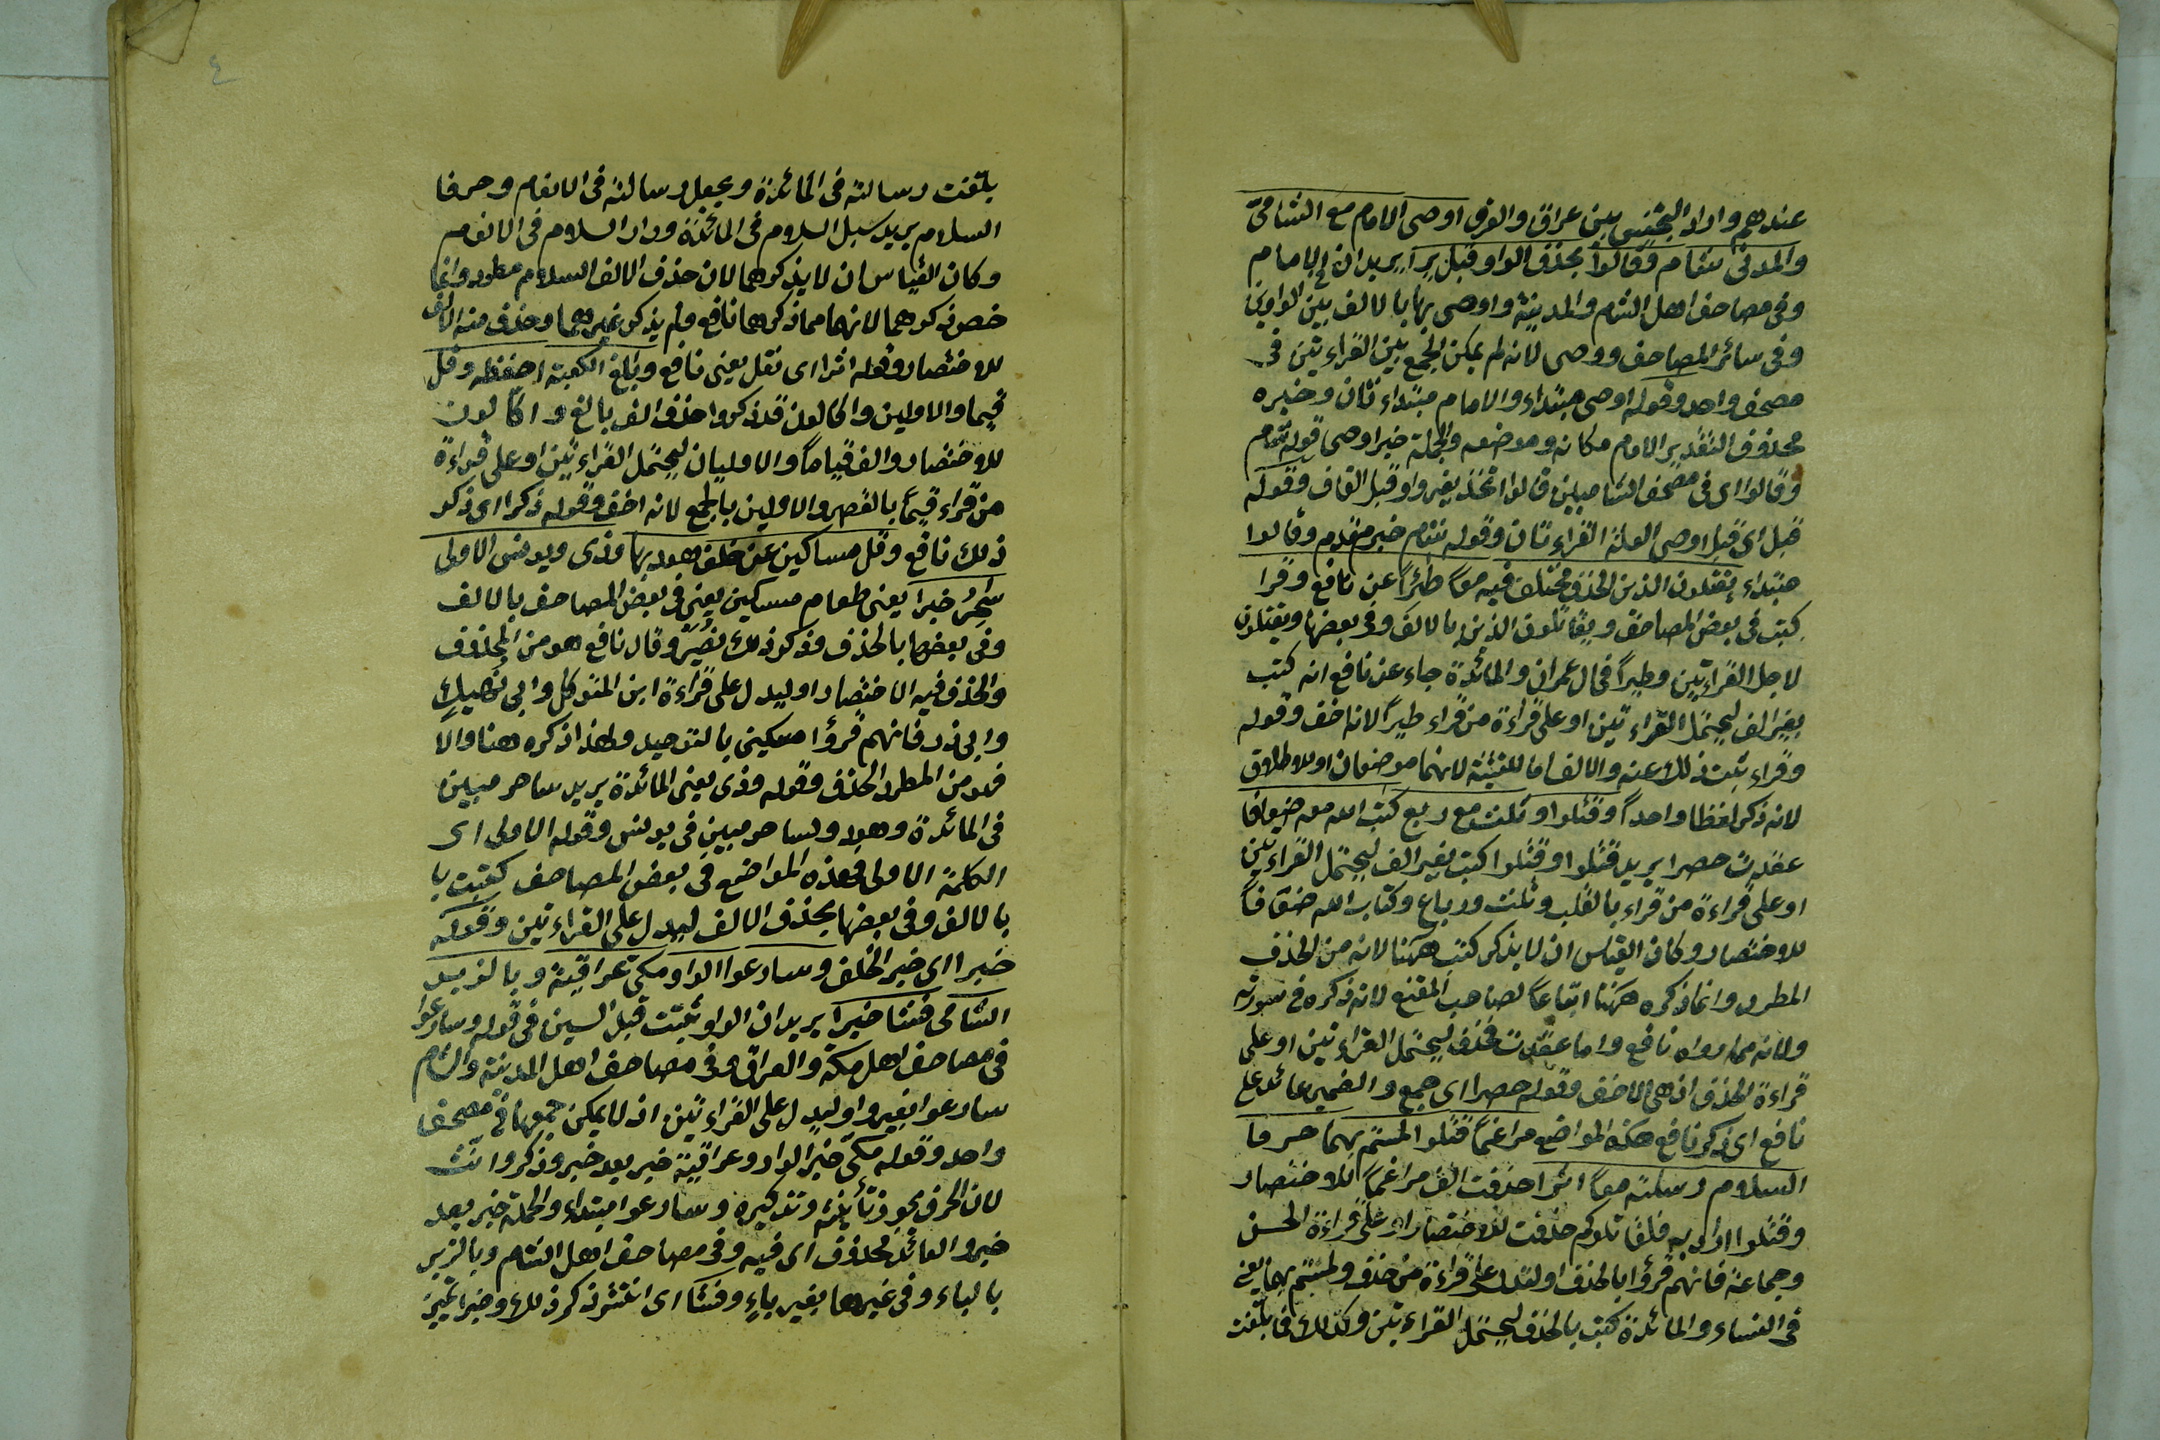 عندهم واراد البحثنى بين عراق والفرق اوصى الامام مع الشامىّ
والمدنى شام وقالوا بحذف الواو قبل يرا يريد ان فى الامام
وفى مصاحف اهل الشام والمدينة واوصى بها بالالف بين الواوين
وفى سائر المصاحف ووصى لانه لم يمكن الجمع بين القراءتين فى
مصحف واحد وقوله اوصى مبتداء والامام مبتداء ثان وخبره
محذوف التقدير الامام مكانه وموضعه والجملة خبر اوصى قوله شام
وقالوا اى فى مصحف الشاميين قالوا اتخذ بغير واو قبل القاف وقوله
قبل اى قبل اوصى القراءتان وقوله شام خبر مقدم وقالوا
مبتداء يقتلون الذين الحذف مختلف فيه معا طئرا عن نافع وقرا
كتب فى بعض المصاحف ويقاتلون الذين بالالف وفى بعضها ويقتلون
لاجل القراءتين وطيراً فى ال عمران والمائدة جاء عن نافع انه كتب
بغير الف ليحتمل القراءتين او على قراءة من قراء طيراً لانه اخف وقوله
وقراء ثبت ذلك عنه والالف اما للتثنية لانهما موضعان او للاطلاق
لانه ذكر لفظا واحداً وقتلوا وثلث مع ربع كتب الله معه ضعافا
عقدت حصرا يريد قتلوا وقتلوا كتب بغير الف ليحتمل القراءتين
او على قراءة من قراء بالقلب وثلث ورباع وكتاب الله ضعافاً
للاختصار وكان القياس ان لا يذكر كتب ههنا لانه من الحذف
المطرد وانما ذكره ههنا اتباعاً لصاحب المقنع لانه ذكره فى سورته
ولانه مما رواه نافع واما عقدت فحذف ليحتمل القراءتين او على
قراءة الحذف اذ هى الاخف وقوله حصرا اى جمع والضمير عائد على
نافع اى ذكر نافع هذه المواضع مراغماً قتلوا لمستم بهما حرفا
السلام رسلته معاً اثرا حذفت الف مراغماً للاختصار
وقتلوا اراد به فلقاتلوكم حذفت للاختصار او على قراءة الحسن
وجماعة فانهم قرؤا بالحذف او لتدل على قراءة من حذف ولمستم بهما يعنى
فى النساء والمائدة كتب بالحذف ليحتمل القراءتين وكذلك فى بلّغت
٤
بلّغت رسالته فى المائدة ويجعل رسالته فى الانعام وحرفا
السلام يريد سبل السلام فى المائدة ودار السلام فى الانعام
وكان القياس ان لا يذكرهما لان حذف الالف السلام مطرد وانما
خص ذكرهما لانهما مما ذكرهما نافع ولم يذكر غيرهما وحذف منه الالف
للاختصار وقوله اثرا اى نقل يعنى نافع وبلغ الكعبة احفظه وقل
قيما والاولين واكالون قد ذكروا حذف الف بالغ واكّالون
للاختصار والف قياماً والاوليان ليحتمل القراءتين او على قراءة
من قراء قيماً بالقصر والاولين بالجمع لانه اخف وقوله ذكرا اى ذكر
ذلك نافع وقل مساكين عن خلف هود بها وذى ويونس الاولى
سٰحِرٌ خبرا يعنى طعام مسكين يعنى فى بعض المصاحف بالالف
وفى بعضها بالحذف فذكر ذلك نصير وقال نافع هو من المحذوف
والحذف فيه الاختصار او ليدل على قراءة ابن المتوكل وابى نهيكٍ
وابى ذر فانهم قرؤا مسكين بالتوحيد ولهذا ذكره هنا والّا
فهو من المطرد الحذف وقوله وذى يعنى المائدة يريد ساحر مبين
فى المائدة وهود ولساحر مبين فى يونس وقوله الاولى اى
الكلمة الاولى فهذه المواضع فى بعض المصاحف كتبت با
بالالف وفى بعضها بحذف الالف ليدل على القراءتين وقوله
خبرا اى خبر الخلف وسارعوا الواو مكى عراقية وبالزبر
الشامى فشا خبرا يريد ان الواو ثبتت قبل السين فى قوله وسارعوا
فى مصاحف اهل مكة والعراق وفى مصاحف اهل المدينة والشام
سارعوا بغير واو ليدل على القراءتين اذ لا يمكن جمعها فى مصحف
واحد وقوله مكّى خبر الواو وعراقية خبر بعد خبر وذكر وانّث
لان الحرف يجوز تأنيثه وتذكيره وسارعوا مبتداء والجملة خبر بعد
خبر والعائد محذوف اى فيه وفى مصاحف اهل الشام وبالزبر
بالباء وفى غيرها بغير باءٍ وفشا اى انتشر ذكر ذلك وخبرا تميز